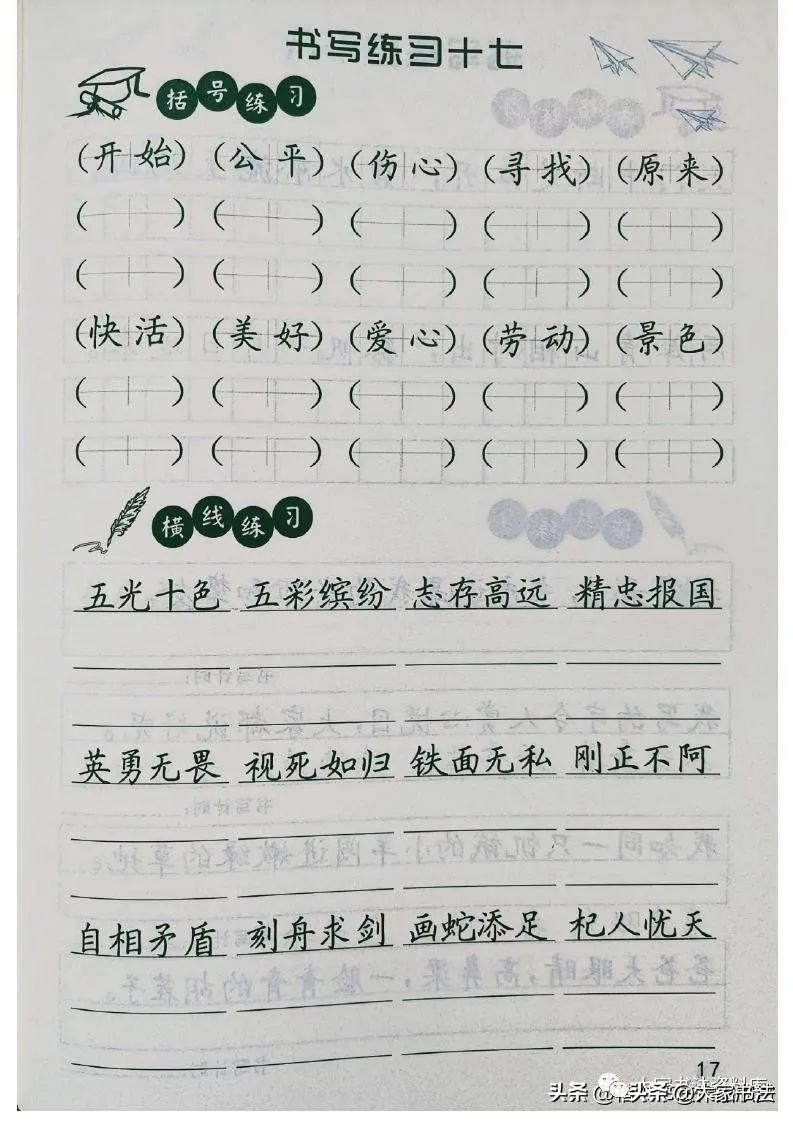 书写练习十七
括号练习
(开始) (公平) (伤心) (寻找) (原来)
( ) ( ) ( ) ( ) ( )
( ) ( ) ( ) ( ) ( )
(快活) (美好) (爱心) (劳动) (景色)
( ) ( ) ( ) ( ) ( )
( ) ( ) ( ) ( ) ( )
横线练习
五光十色 五彩缤纷 志存高远 精忠报国
英勇无畏 视死如归 铁面无私 刚正不阿
自相矛盾 刻舟求剑 画蛇添足 杞人忧天
17
头条 @大家书法